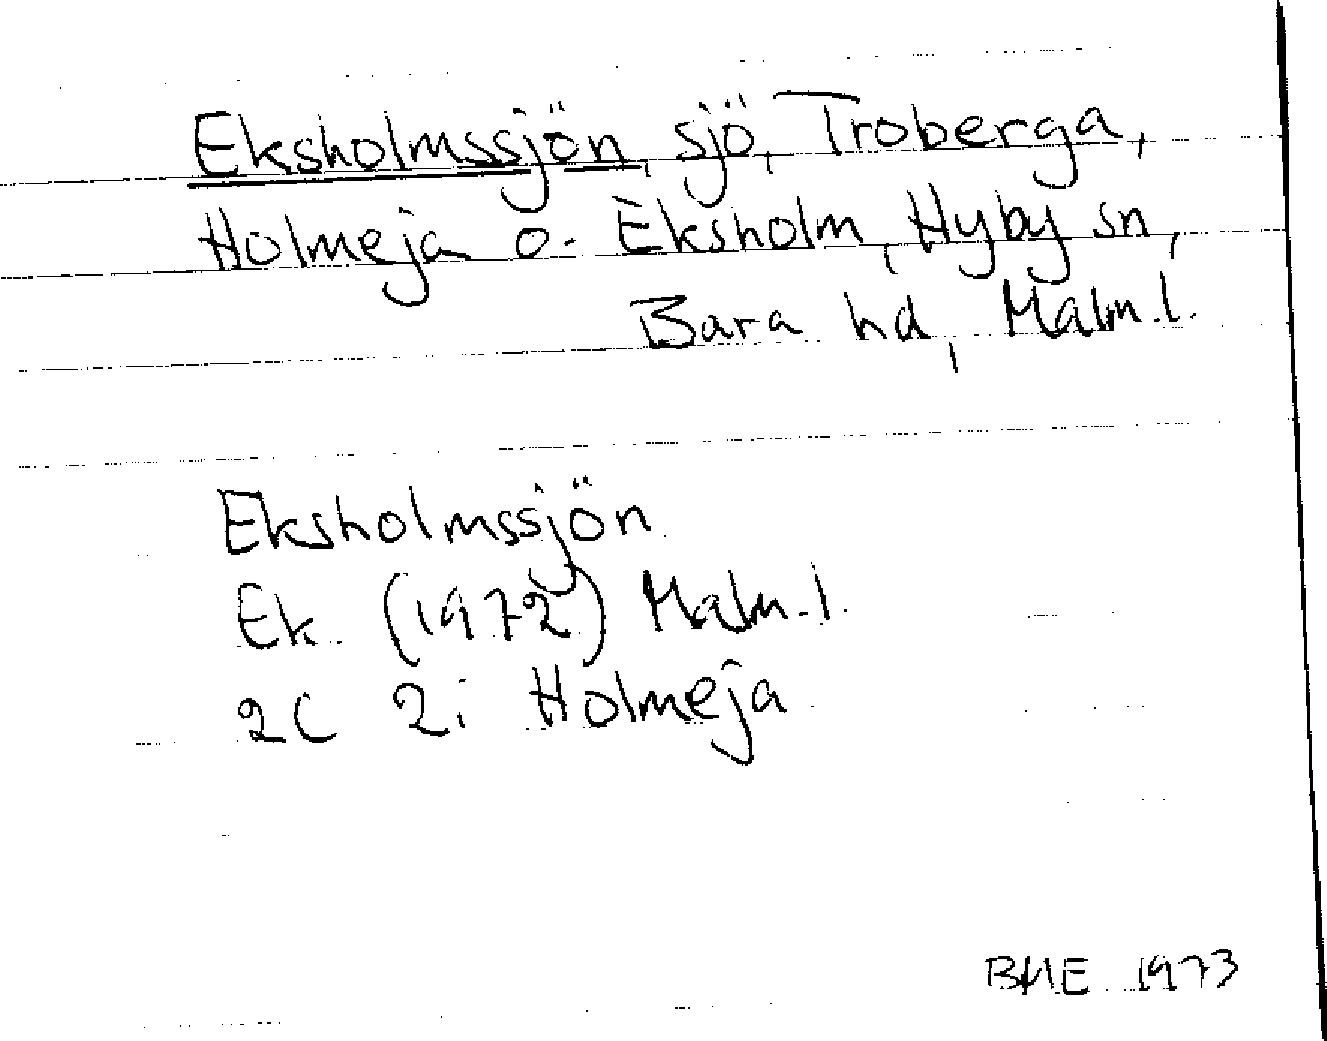 Eksholmssjön, sjö, Troberga,
Holmeja o. Eksholm, Hyby sn,
Bara hd, Malm.l.
Eksholmssjön
Ek. (1972) Malm.l.
2C 2i Holmeja
BME 1973